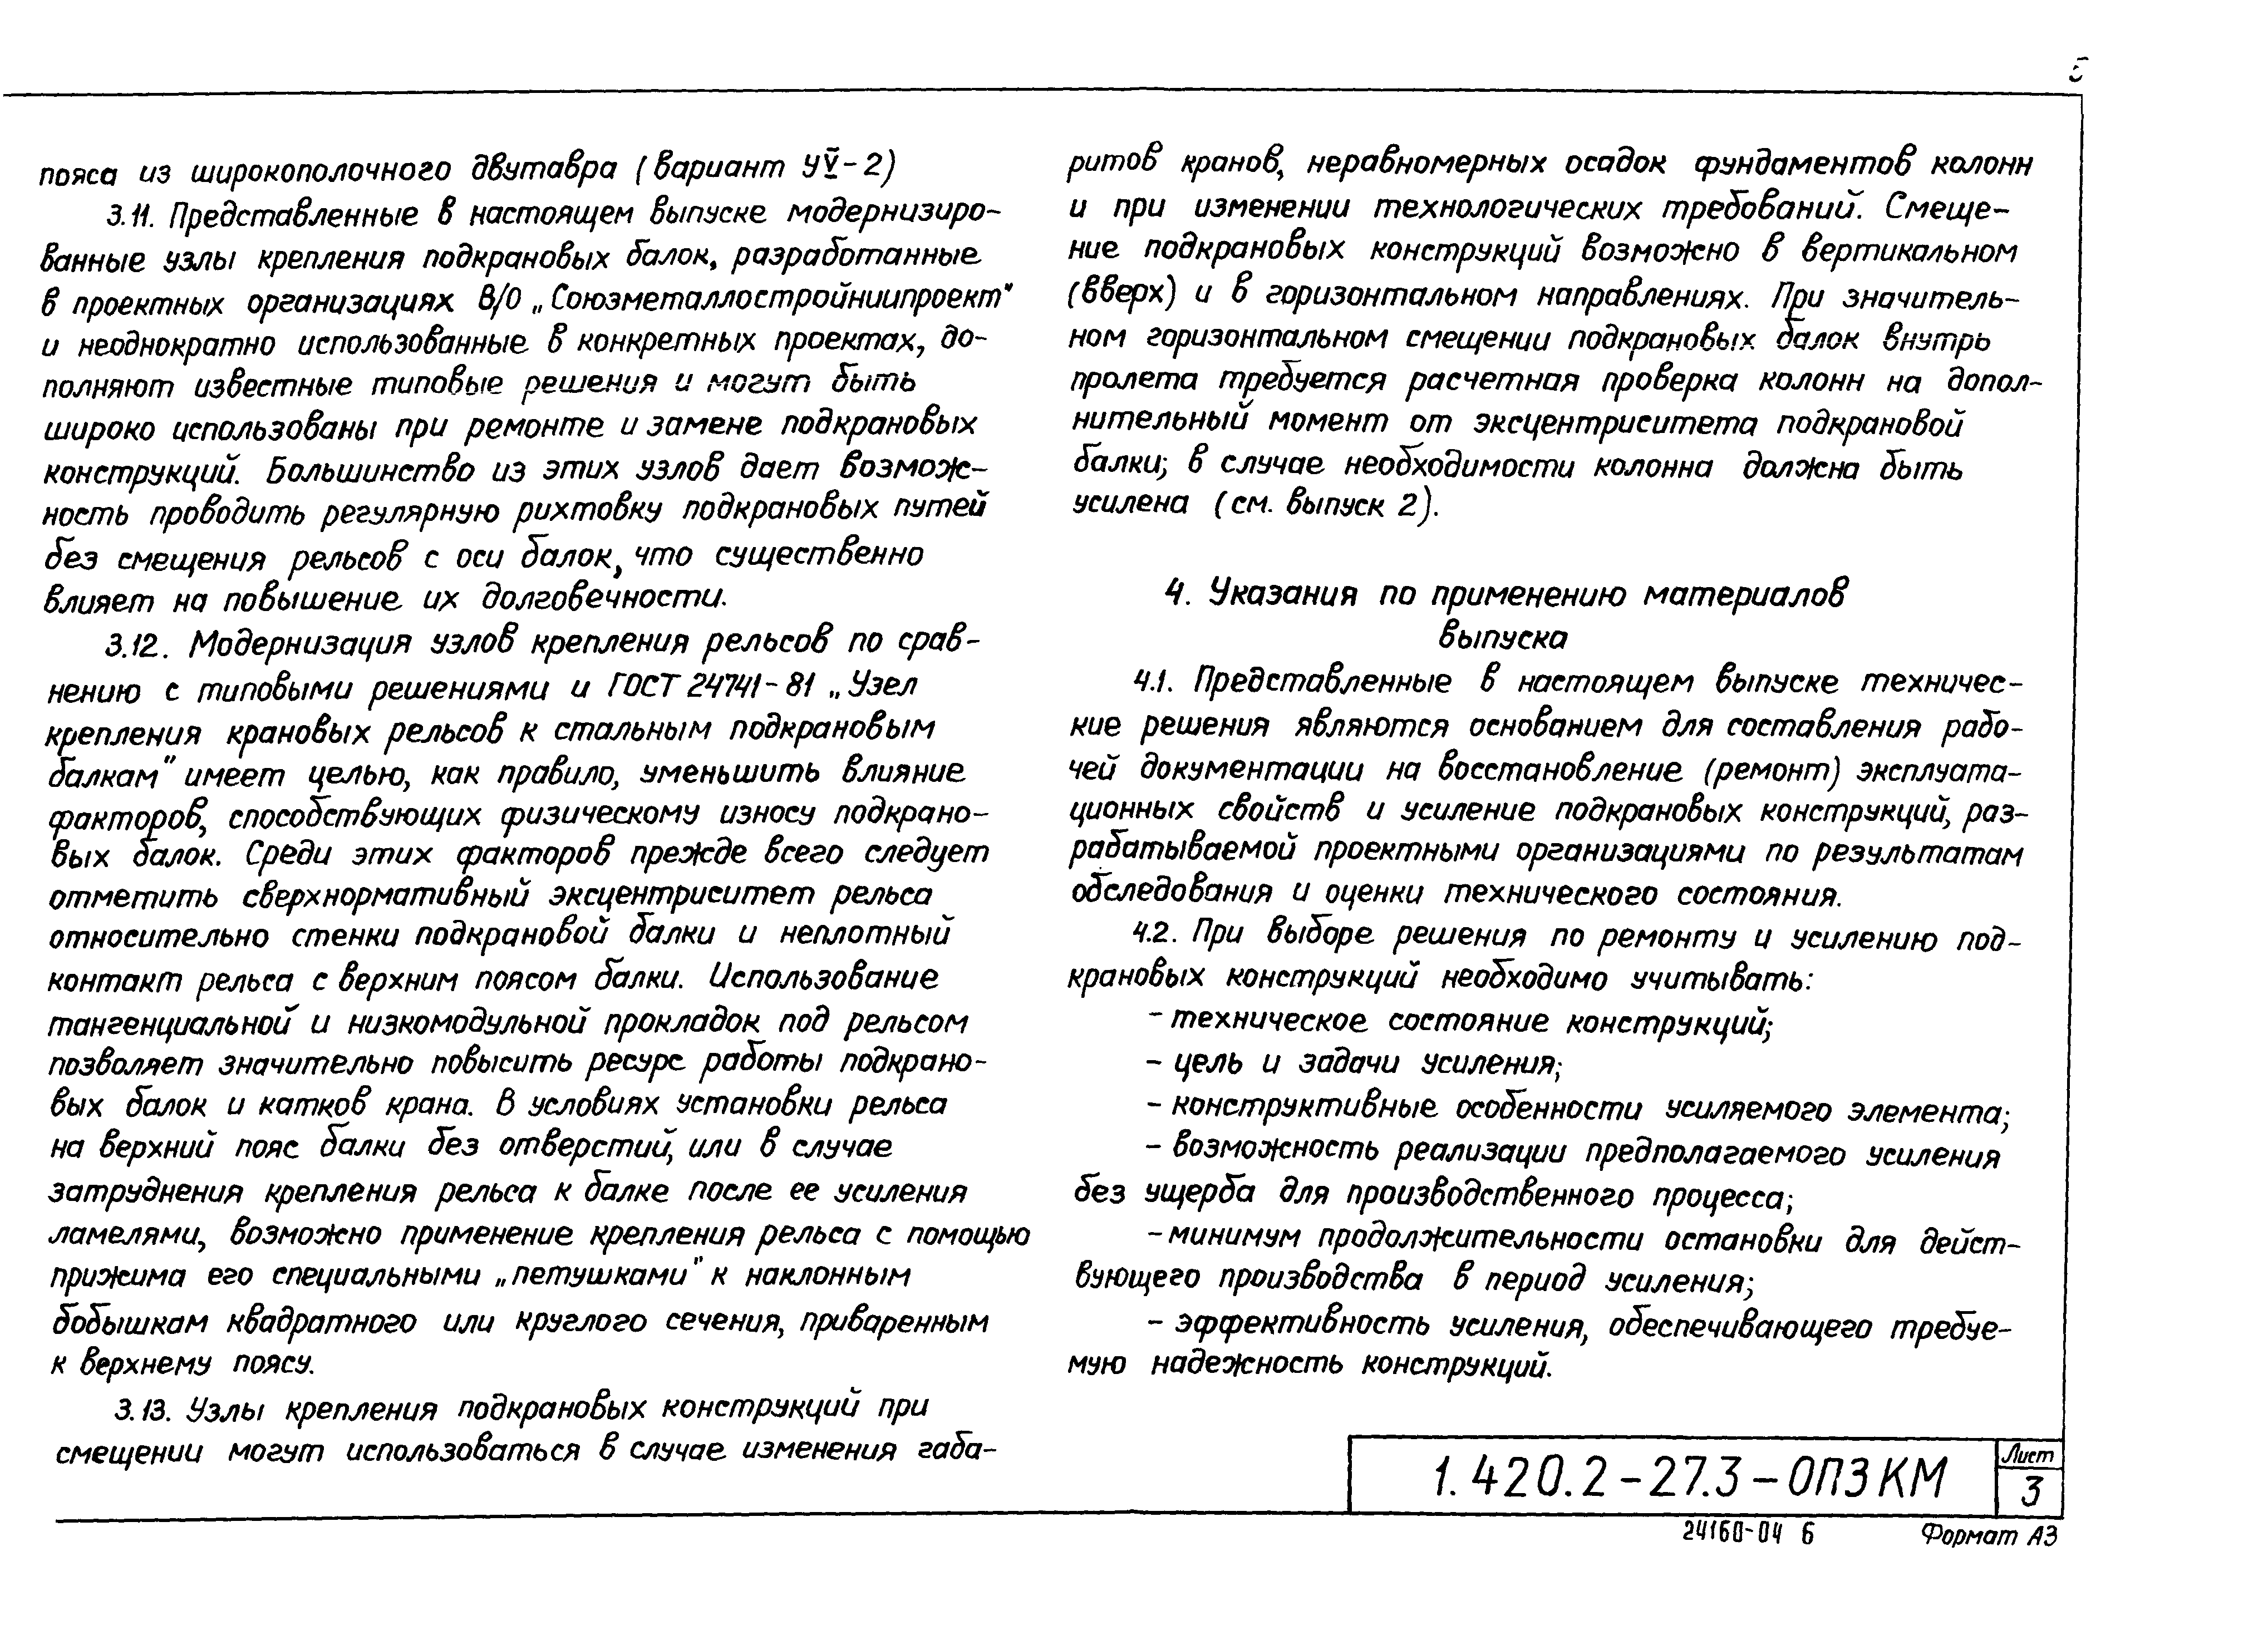 5
пояса из широкополочного двутавра (вариант УV-2)
3.11. Представленные в настоящем выпуске модернизиро-
ванные узлы крепления подкрановых балок, разработанные
в проектных организациях В/О „Союзметаллостройниипроект"
и неоднократно использованные в конкретных проектах, до-
полняют известные типовые решения и могут быть
широко использованы при ремонте и замене подкрановых
конструкций. Большинство из этих узлов дает возмож-
ность проводить регулярную рихтовку подкрановых путей
без смещения рельсов с оси балок, что существенно
влияет на повышение их долговечности.
3.12. Модернизация узлов крепления рельсов по срав-
нению с типовыми решениями и ГОСТ 24741-81 „Узел
крепления крановых рельсов к стальным подкрановым
балкам" имеет целью, как правило, уменьшить влияние
факторов, способствующих физическому износу подкрано-
вых балок. Среди этих факторов прежде всего следует
отметить сверхнормативный эксцентриситет рельса
относительно стенки подкрановой балки и неплотный
контакт рельса с верхним поясом балки. Использование
тангенциальной и низкомодульной прокладок под рельсом
позволяет значительно повысить ресурс работы подкрано-
вых балок и катков крана. В условиях установки рельса
на верхний пояс балки без отверстий, или в случае
затруднения крепления рельса к балке после ее усиления
ламелями, возможно применение крепления рельса с помощью
прижима его специальными „петушками" к наклонным
бобышкам квадратного или круглого сечения, приваренным
к верхнему поясу.
3.13. Узлы крепления подкрановых конструкций при
смещении могут использоваться в случае изменения габа-
ритов кранов, неравномерных осадок фундаментов колонн
и при изменении технологических требований. Смеще-
ние подкрановых конструкций возможно в вертикальном
(вверх) и в горизонтальном направлениях. При значитель-
ном горизонтальном смещении подкрановых балок внутрь
пролета требуется расчетная проверка колонн на допол-
нительный момент от эксцентриситета подкрановой
балки; в случае необходимости колонна должна быть
усилена (см. выпуск 2).
4. Указания по применению материалов
выпуска
4.1. Представленные в настоящем выпуске техничес-
кие решения являются основанием для составления рабо-
чей документации на восстановление (ремонт) эксплуата-
ционных свойств и усиление подкрановых конструкций, раз-
рабатываемой проектными организациями по результатам
обследования и оценки технического состояния.
4.2. При выборе решения по ремонту и усилению под-
крановых конструкций необходимо учитывать:
- техническое состояние конструкций;
- цель и задачи усиления;
- конструктивные особенности усиляемого элемента;
- возможность реализации предполагаемого усиления
без ущерба для производственного процесса;
- минимум продолжительности остановки для дейст-
вующего производства в период усиления;
- эффективность усиления, обеспечивающего требуе-
мую надежность конструкций.
1.420.2-27.3-ОПЗ КМ
Лист
3
24160-04 6
Формат А3